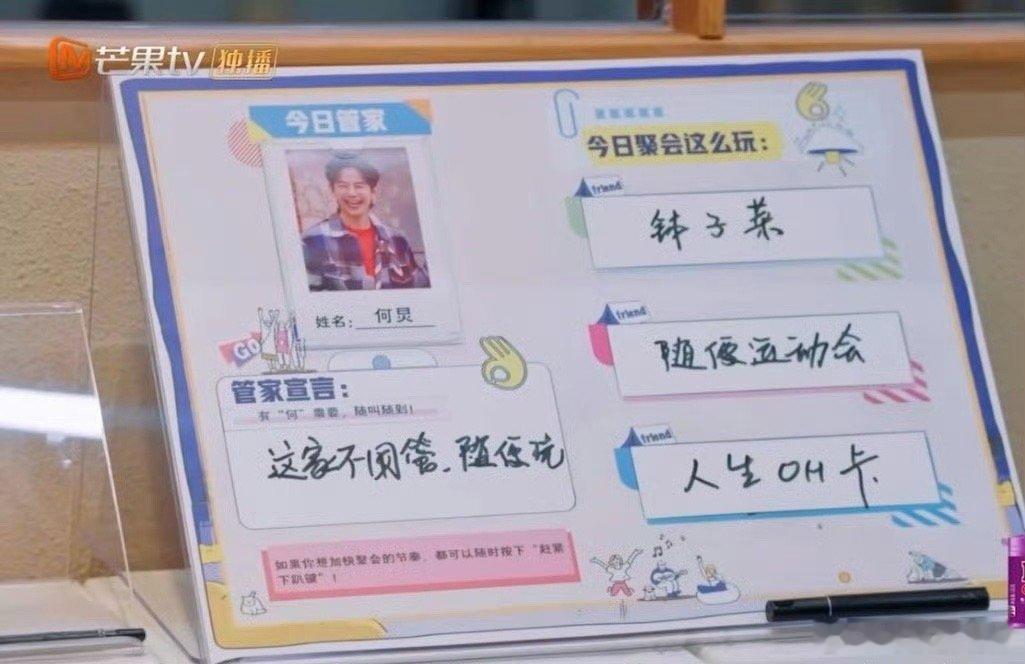 芒果tv 独播
今日管家
姓名: 何炅
GO
管家宣言:
有“何”需要,随叫随到!
这家不用管、随便玩
如果你想加快聚会的节奏,都可以随时按下“赶紧
下趴键”!
今日聚会这么玩:
friend
钵子菜
friend
随便运动会
friend
人生OH卡